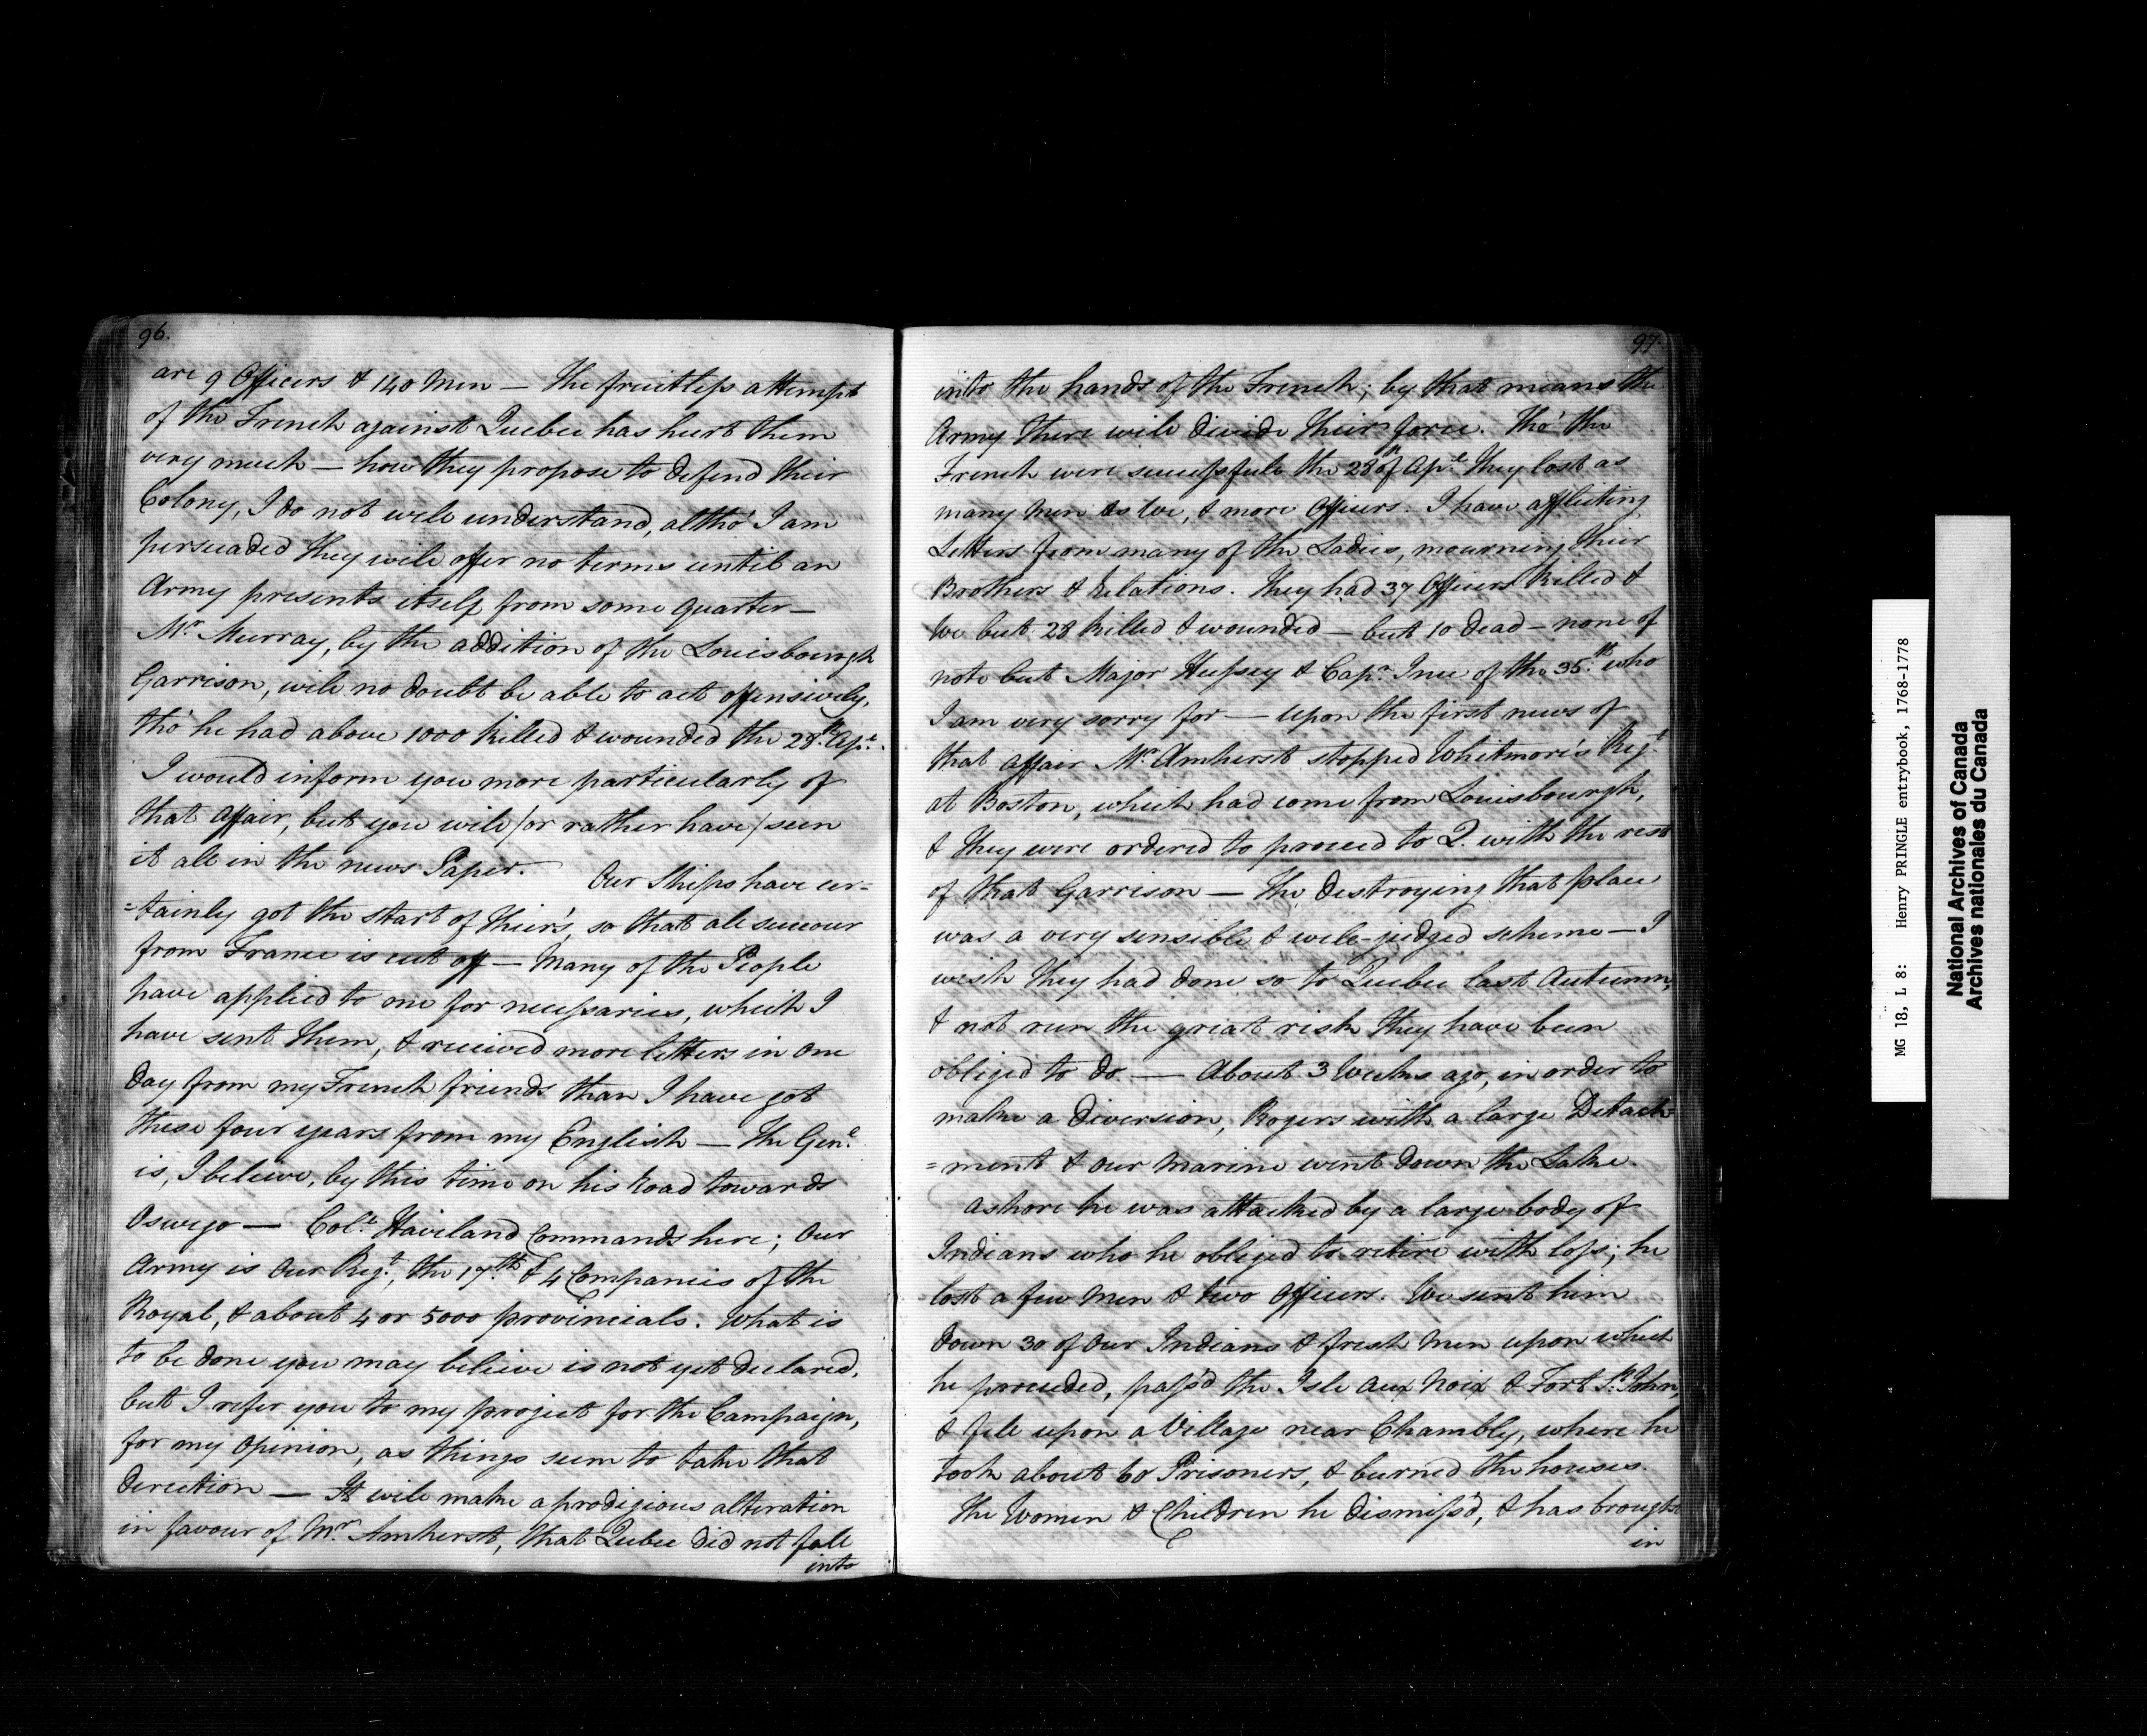 96.
are 9 Officers & 140 Men — The fruitless attempt
of the French against Quebec has hurt them
very much — how they propose to defend their
Colony, I do not well understand, altho' I am
persuaded they will offer no terms until an
Army presents itself from some quarter —
Mr. Murray, by the addition of the Louisbourgh
Garrison, will no doubt be able to act offensively,
tho' he had above 1000 killed & wounded the 28th. Apl.
I would inform you more particularly of
that affair, but you will /or rather have/ seen
it all in the news Paper. Our Ships have cer=
=tainly got the start of their's, so that all succour
from France is cut off — Many of the People
have applied to me for necessaries, which I
have sent them, & received more letters in one
day from my French friends than I have got
these four years from my English — The Genl.
is, I believe, by this time on his Road towards
Oswego — Coll. Haviland Commands here; Our
Army is Our Regt., the 17th. & 4 Companies of the
Royal, & about 4 or 5000 provincials. What is
to be done you may believe is not yet declared,
but I refer you to my project for the Campaign,
for my Opinion, as things seem to take that
direction — It will make a prodigious alteration
in favour of Mr. Amherst, that Quebec did not fall
into
97.
into the hands of the French; by that means the
Army there will divide their force. Tho' the
French were successful the 28th of Apl. they lost as
many Men as We, & more Officers. I have afflicting
Letters from many of the Ladies, mourning their
Brothers & Relations. They had 37 Officers killed &
We but 28 killed & wounded — but 10 dead — none of
note but Major Hussey & Capn. Ince of the 35th. who
I am very sorry for — upon the first news of
that affair Mr. Amherst stopped Whitmore's Regt.
at Boston, which had come from Louisbourgh,
& they were ordered to proceed to Q. with the rest
of that Garrison — The destroying that place
was a very sensible & well-judged scheme — I
wish they had done so to Quebec last Autumn,
& not run the great risk they have been
obliged to do — About 3 Weeks ago, in order to
make a diversion, Rogers with a large Detach=
=ment & our Marine went down the Lake.
Ashore he was attacked by a large body of
Indians who he obliged to retire with loss; he
lost a few Men & two Officers. We sent him
down 30 of our Indians & fresh Men upon which
he proceeded, pass'd the Isle aux Noix & Fort St. John,
& fell upon a Village near Chambly, where he
took about 60 Prisoners, & burned the houses.
The Women & Children he dismiss'd, & has brought
in
MG 18, L 8: Henry PRINGLE entrybook, 1768-1778
National Archives of Canada
Archives nationales du Canada